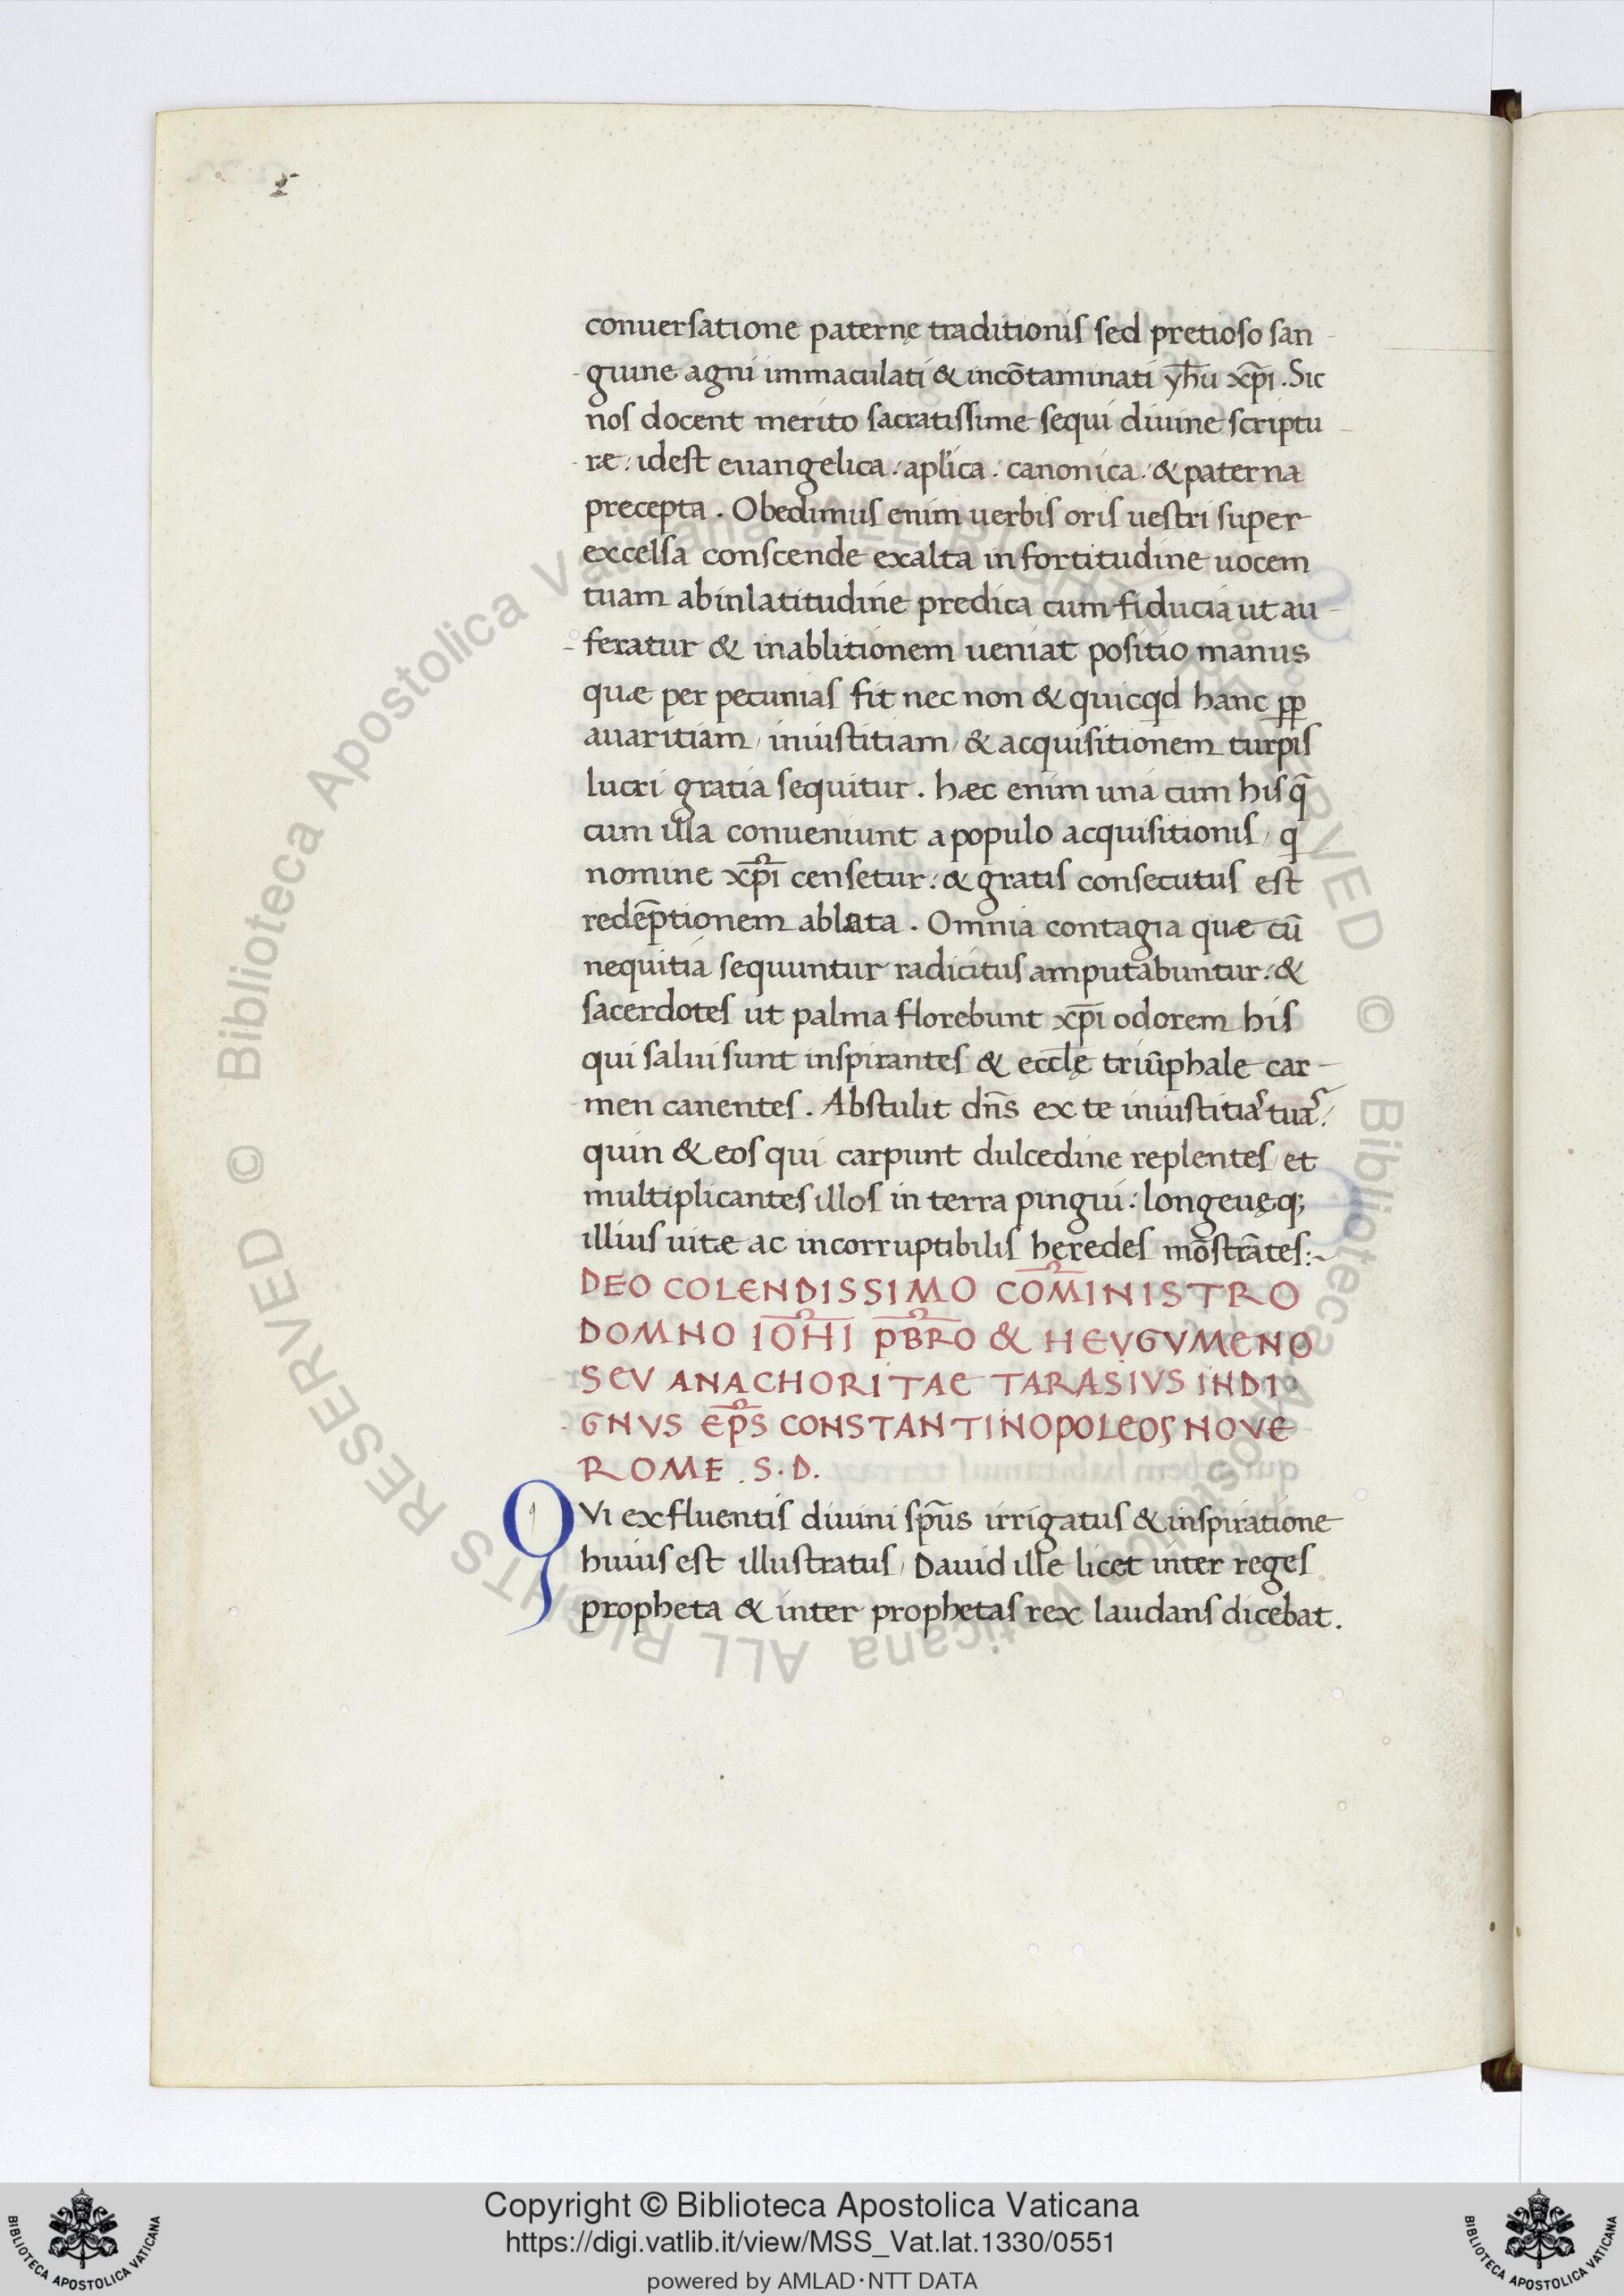 conuersatione paternę traditionis sed pretioso san-
guine agni immaculati & incōtaminati yh̄u xp̄i. Sic
nos docent merito sacratissime sequi diuine scriptu
ræ: idest euangelica: apl̄ica: canonica: & paterna
precepta. Obedimus enim uerbis oris uestri super
excelsa conscende exalta in fortitudine uocem
tuam abinlatitudine predica cum fiducia ut au-
feratur & inablitionem ueniat positio manus
quæ per pecunias fit nec non & quicqd hanc pp
auaritiam, iniustitiam, & acquisitionem turpis
lucri gratia sequitur. hæc enim una cum his q̄
cum illa conueniunt a populo acquisitionis, q
nomine xp̄i censetur: & gratis consecutus est
redēptionem ablata. Omnia contagia quæ cū
nequitia sequuntur radicitus amputabuntur: &
sacerdotes ut palma florebunt xp̄i odorem his
qui salui sunt inspirantes & eccl̄ę triūphale car-
men canentes. Abstulit dn̄s ex te iniustitiā tuā:
quin & eos qui carpunt dulcedine replentes, et
multiplicantes illos in terra pingui: longeuęq;
illius uitæ ac incorruptibilis heredes mōstrātes:~
DEO COLENDISSIMO COM̄INISTRO
DOMNO IOH̄I PB̄RO & HEVGVMENO
SEV ANACHORITAE TARASIVS INDI
GNVS EP̄S CONSTANTINOPOLEOS NOVE
ROME. S. D.
QVI ex fluentis diuini sp̄us irrigatus & inspiratione
huius est illustratus, Dauid ille licet inter reges
propheta & inter prophetas rex laudans dicebat.
Copyright © Biblioteca Apostolica Vaticana
https://digi.vatlib.it/view/MSS_Vat.lat.1330/0551
powered by AMLAD·NTT DATA
BIBLIOTECA APOSTOLICA VATICANA
BIBLIOTECA APOSTOLICA VATICANA
© Biblioteca Apostolica Vaticana ALL RIGHTS RESERVED © Biblioteca Apostolica Vaticana ALL RIGHTS RESERVED